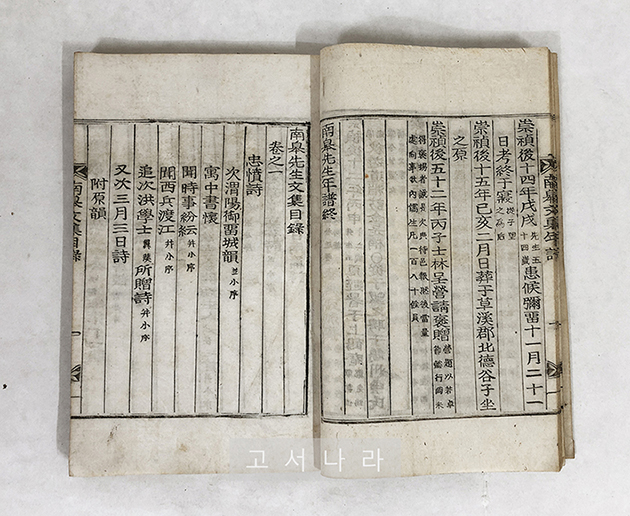 崇禎後十四年戊戌先生五十四歲患候彌留十一月二十一
日考終于寢
崇禎後十五年己亥二月日葬于草溪郡北德谷子坐
之原
崇禎後五十二年丙子士林呈營請褒贈
南皐先生年譜終
南皐文集年譜
南皐先生文集目錄
卷之一
忠憤詩
次渭陽御留城韻並小序
寓中書懷
聞時事紛紜幷小序
聞西兵渡江幷小序
追次洪學士翼漢所贈詩幷小序
又次三月三日詩
附原韻
南皐文集目錄
一
고서나라